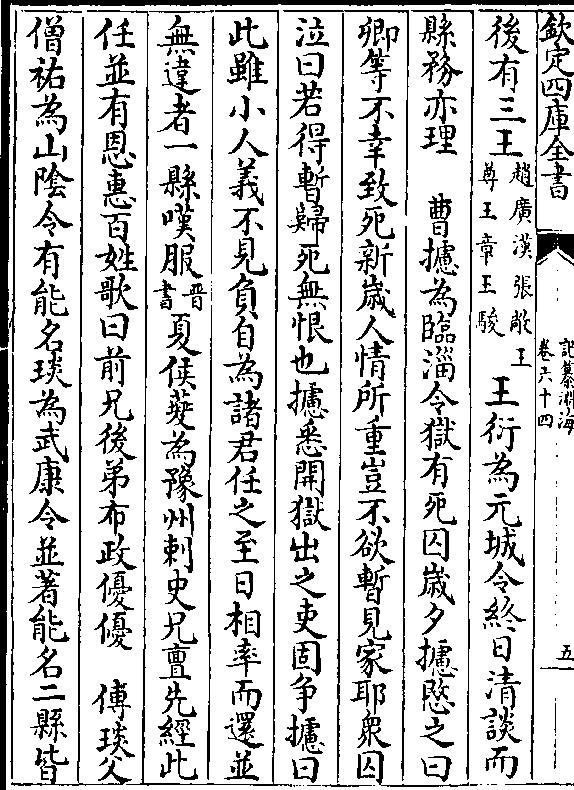 欽定四庫全書
記纂淵海
卷六十四
五
後有三王趙廣漢張敞王尊王章王駿王衍為元城令終日清談而
縣務亦理　曹攄為臨淄令獄有死囚歲夕攄愍之曰
卿等不幸致死新歲人情所重豈不欲暫見家耶衆囚
泣曰若得暫歸死無恨也攄悉開獄出之吏固争攄曰
此雖小人義不見負自為諸君任之至日相率而還並
無違者一縣嘆服晉書夏侯䕫為豫州刺史兄亶先經此
任並有恩惠百姓歌曰前兄後弟布政優優　傅琰父
僧祐為山陰令有能名琰為武康令並著能名二縣皆